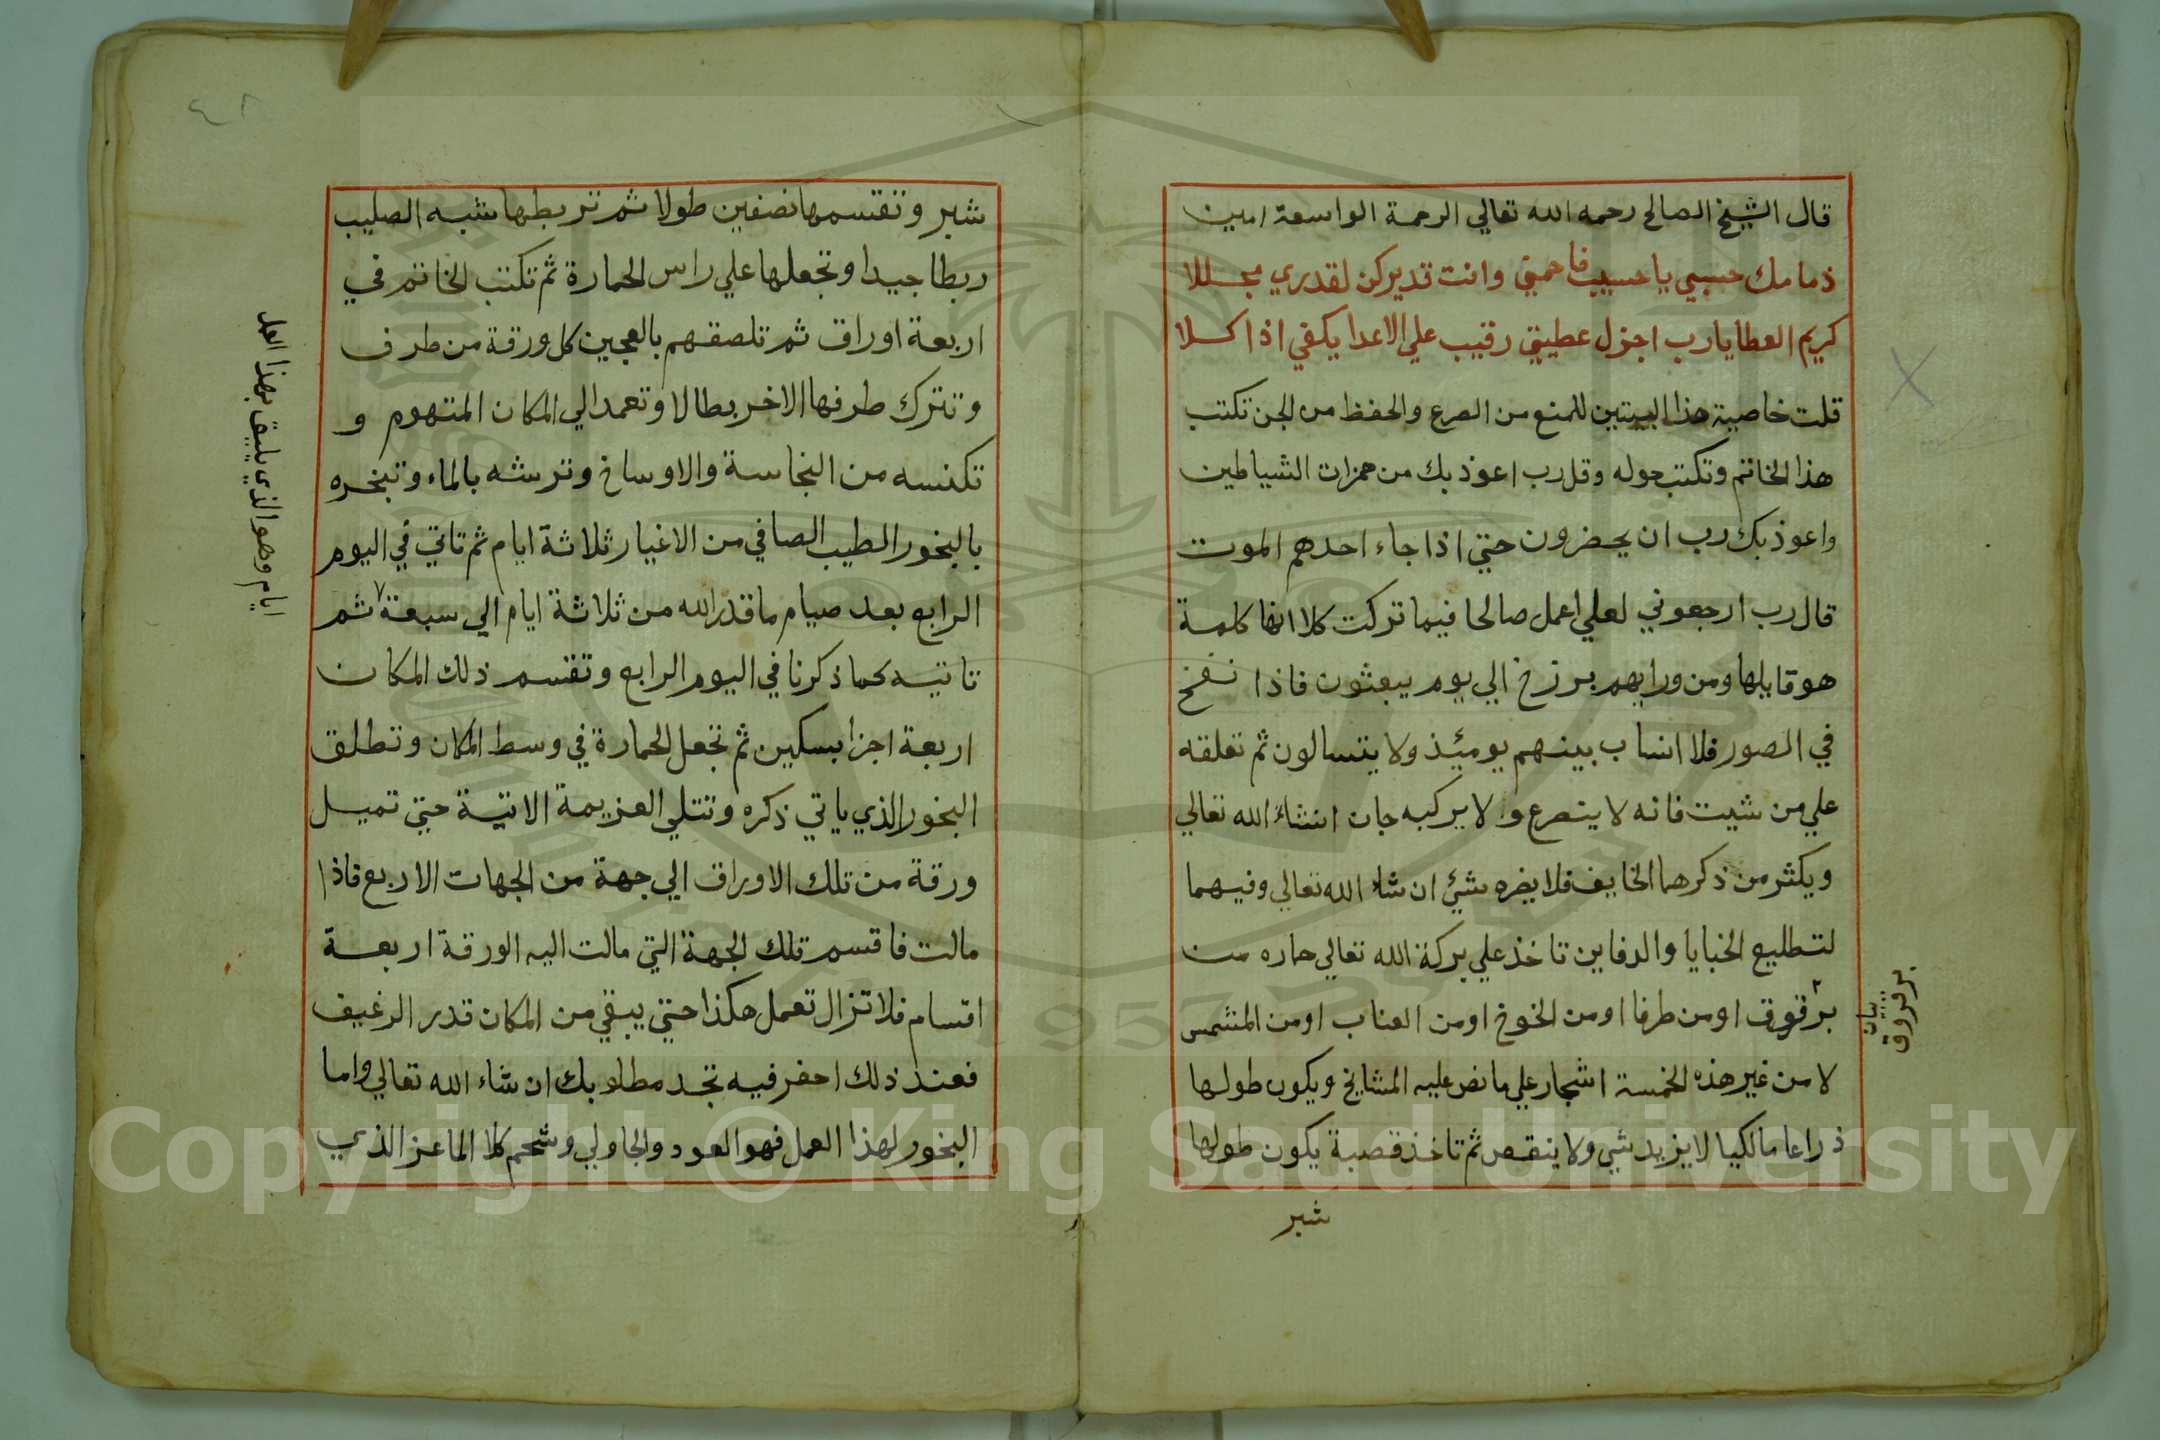 قال الشيخ الصالح رحمه الله تعالي الرحمة الواسعة امين
ذمامك حسبي يا حسيب فاحمني وانت قديركن لقدري مجللا
كريم العطا يارب اجزل عطيتي رقيب علي الاعدا يكفي اذا كلا
قلت خاصية هذا البيتين للمنع من الصرع والحفظ من الجن تكتب
هذا الخاتم وتكتب حوله وقل رب اعوذ بك من همزات الشياطين
واعوذ بك رب ان يحضرون حتي اذا جاء احدهم الموت
قال رب ارجعوني لعلي اعمل صالحا فيما تركت كلا انها كلمة
هو قايلها ومن ورايهم برزخ الي يوم يبعثون فاذا نفخ
في الصور فلا انساب بينهم يوميئذ ولا يتسالون ثم تعلقه
علي من شيت فانه لا يتصرع ولا يركبه جان انشاء الله تعالي
ويكثر من ذكرهما الخايف فلا يضره شيئ ان شاء الله تعالي وفيهما
لتطليع الخبايا والدفاين تاخذ علي بركة الله تعالي حماره من
برقوق اومن طرفا اومن الخوخ اومن العناب اومن المشمس
لا من غير هذه الخمسة اشجار علي ما نص عليه المشايخ ويكون طولها
ذراعا مالكيا لا يزيد شي ولا ينقص ثم تاخذ قصبة يكون طولها
شبر
بيان
برقروق
٤٢
شبر وتقتسمها نصفين طولا ثم تربطها شبه الصليب
ربطا جيدا وتجعلها علي راس الحمارة ثم تكتب الخاتم في
اربعة اوراق ثم تلصقهم بالعجين كل ورقة من طرف
وتترك طرفها الاخر بطالا وتعمد الي المكان المتهوم و
تكنسه من النجاسة والاوساخ وترشه بالماء وتبخره
بالبخور الطيب الصافي من الاغيار ثلاثة ايام ثم تاتي في اليوم
الرابع بعد صيام ما قدر الله من ثلاثة ايام الي سبعة ٧ ثم
تاتيه كما ذكرنا في اليوم الرابع وتقسم ذلك المكان
اربعة اجزا بسكين ثم تجعل الحمارة في وسط المكان وتطلق
البخور الذي ياتي ذكره وتتلي العزيمة الاتية حتي تميل
ورقة من تلك الاوراق الي جهة من الجهات الاربع فاذا
مالت فاقسم تلك الجهة التي مالت اليه الورقة اربعة
اقسام فلا تزال تعمل هكذا حتي يبقي من المكان قدر الرغيف
فعند ذلك احفر فيه تجد مطلوبك ان شاء الله تعالي واما
البخور لهذا العمل فهو العود والجاولي وشحم كلا الماعز الذي
ايام وهو الذي يليق بهذا العمل
Copyright © King Saud University